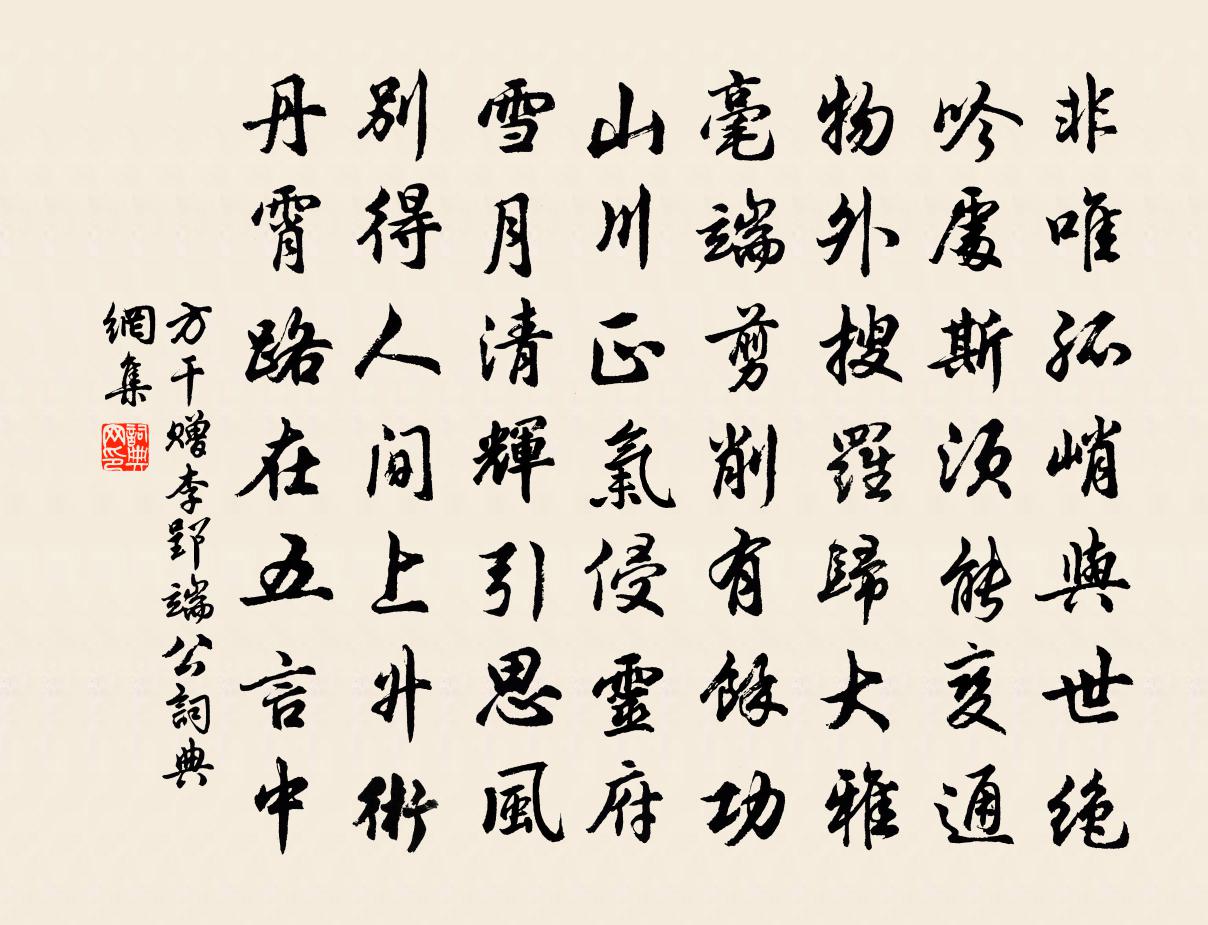 非唯孤峭與世絕
吟處斯須能變通
物外搜羅歸大雅
毫端剪削有餘功
山川正氣侵靈府
雪月清輝引思風
別得人間上升術
丹霄路在五言中
方干贈李郢端公詞典
網集
詞典網印